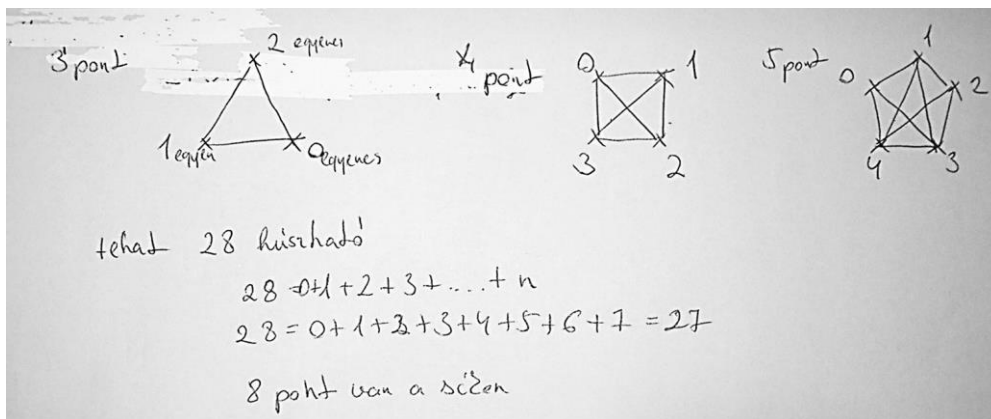 3 pont
2 egyenes
1 egyen
0 egyenes
4 pont
0 1
3 2
5 pont
1
0 2
4 3
tehat 28 húzható
28 = 0+1+2+3+....+n
28 = 0+1+2+3+4+5+6+7 = 27
8 pont van a síkon